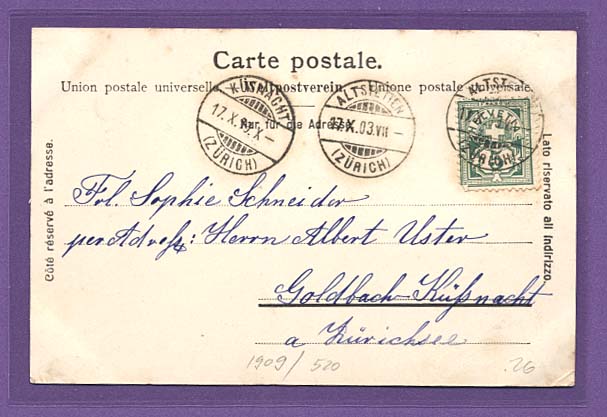 Carte postale.
Union postale universelle. – Weltpostverein. – Unione postale universale.
Nur für die Adresse.
KÜSNACHT
17.X. X–
(ZÜRICH)
ALTSTETTEN
17.X.03.VII–
(ZÜRICH)
ALTSTETTEN
(ZÜRICH)
HELVETIA
Côté réservé à l'adresse.
Lato riservato all indirizzo.
Frl. Sophie Schneider
per Adreß: Herrn Albert Uster
Goldbach-Küßnacht
a Zürichsee
1909/520
.26